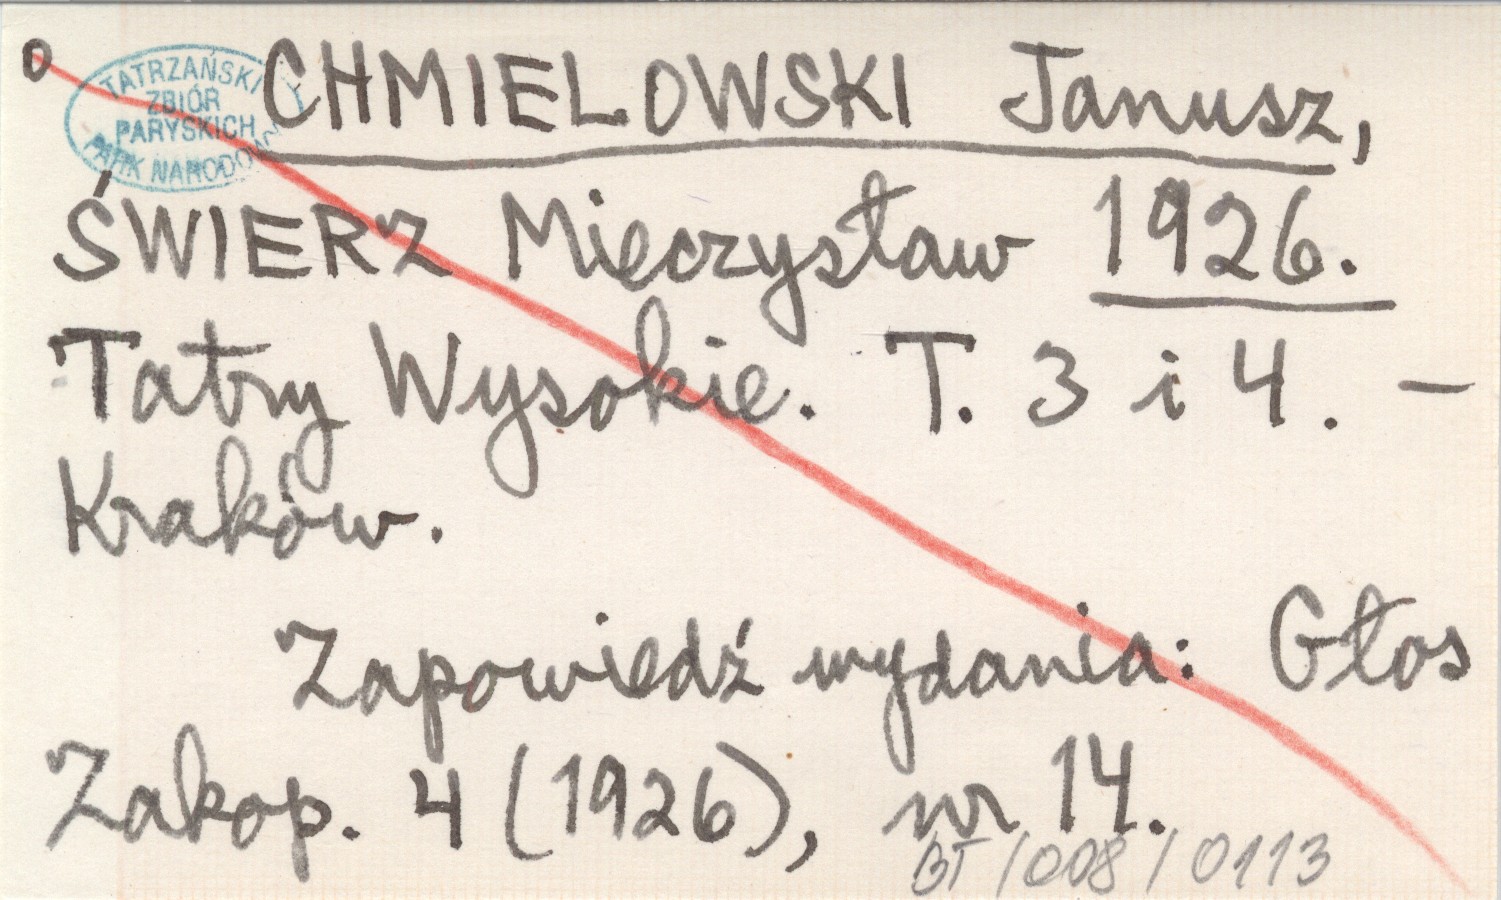 o CHMIELOWSKI Janusz,
TATRZAŃSKI
ZBIÓR
PARYSKICH
PARK NARODOWY
ŚWIERZ Mieczysław 1926.
Tatry Wysokie. T. 3 i 4. –
Kraków.
Zapowiedź wydania: Głos
Zakop. 4 (1926), nr 14.
BT/008/0113